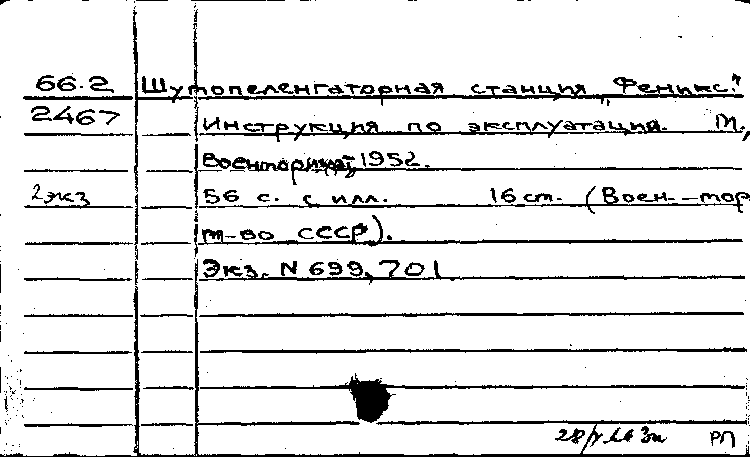 66.2 Шумопеленгаторная станция „Феникс."
2467 Инструкция по эксплуатации. М.,
Военмориздат, 1952.
2 экз 56 с. с илл. 16 см. (Воен.-мор.
м-во СССР).
Экз. N 699, 701
РП